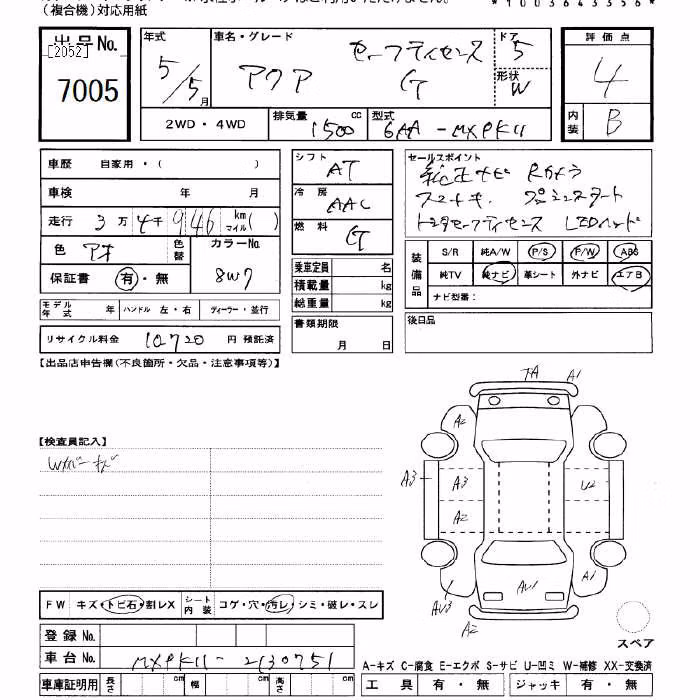 (複合機)対応用紙
*1003643356*
出品No.
[2052]
7005
年式 5/5月
車名・グレード アクア セーフティセンス G
ドア 5
形状 W
評価点 4
内装 B
2WD・4WD
排気量 1500 cc
型式 6AA-MXPK11
車歴 自家用・( )
車検 年 月
走行 3万4千946 km マイル( )
色 アオ 色替 カラーNo. 8W7
保証書 有・無
モデル年式 年 ハンドル 左・右 ディーラー・並行
リサイクル料金 10720 円 預託済
シフト AT
冷房 AAC
燃料 G
乗車定員 名
積載量 kg
総重量 kg
書類期限
月 日
セールスポイント
純正ナビ Rカメラ
スマートキー プッシュスタート
トヨタセーフティセンス LEDヘッド
装備品 S/R 純A/W P/S P/W ABS
純TV 純ナビ 革シート 外ナビ エアB
ナビ型番:
後日品
【出品店申告欄(不良箇所・欠品・注意事項等)】
【検査員記入】
Wカバーキズ
A1
A2
A3 A3 U2
A2
A1
AU1
AU3
A2
スペア
FW キズ・トビ石・割レX シート内装 コゲ・穴・汚レ・シミ・破レ・スレ
登録No.
車台No. MXPK11-2130751
車庫証明用 長さ cm 幅 cm 高さ cm
A-キズ C-腐食 E-エクボ S-サビ U-凹ミ W-補修 XX-交換済
工具 有・無 ジャッキ 有・無